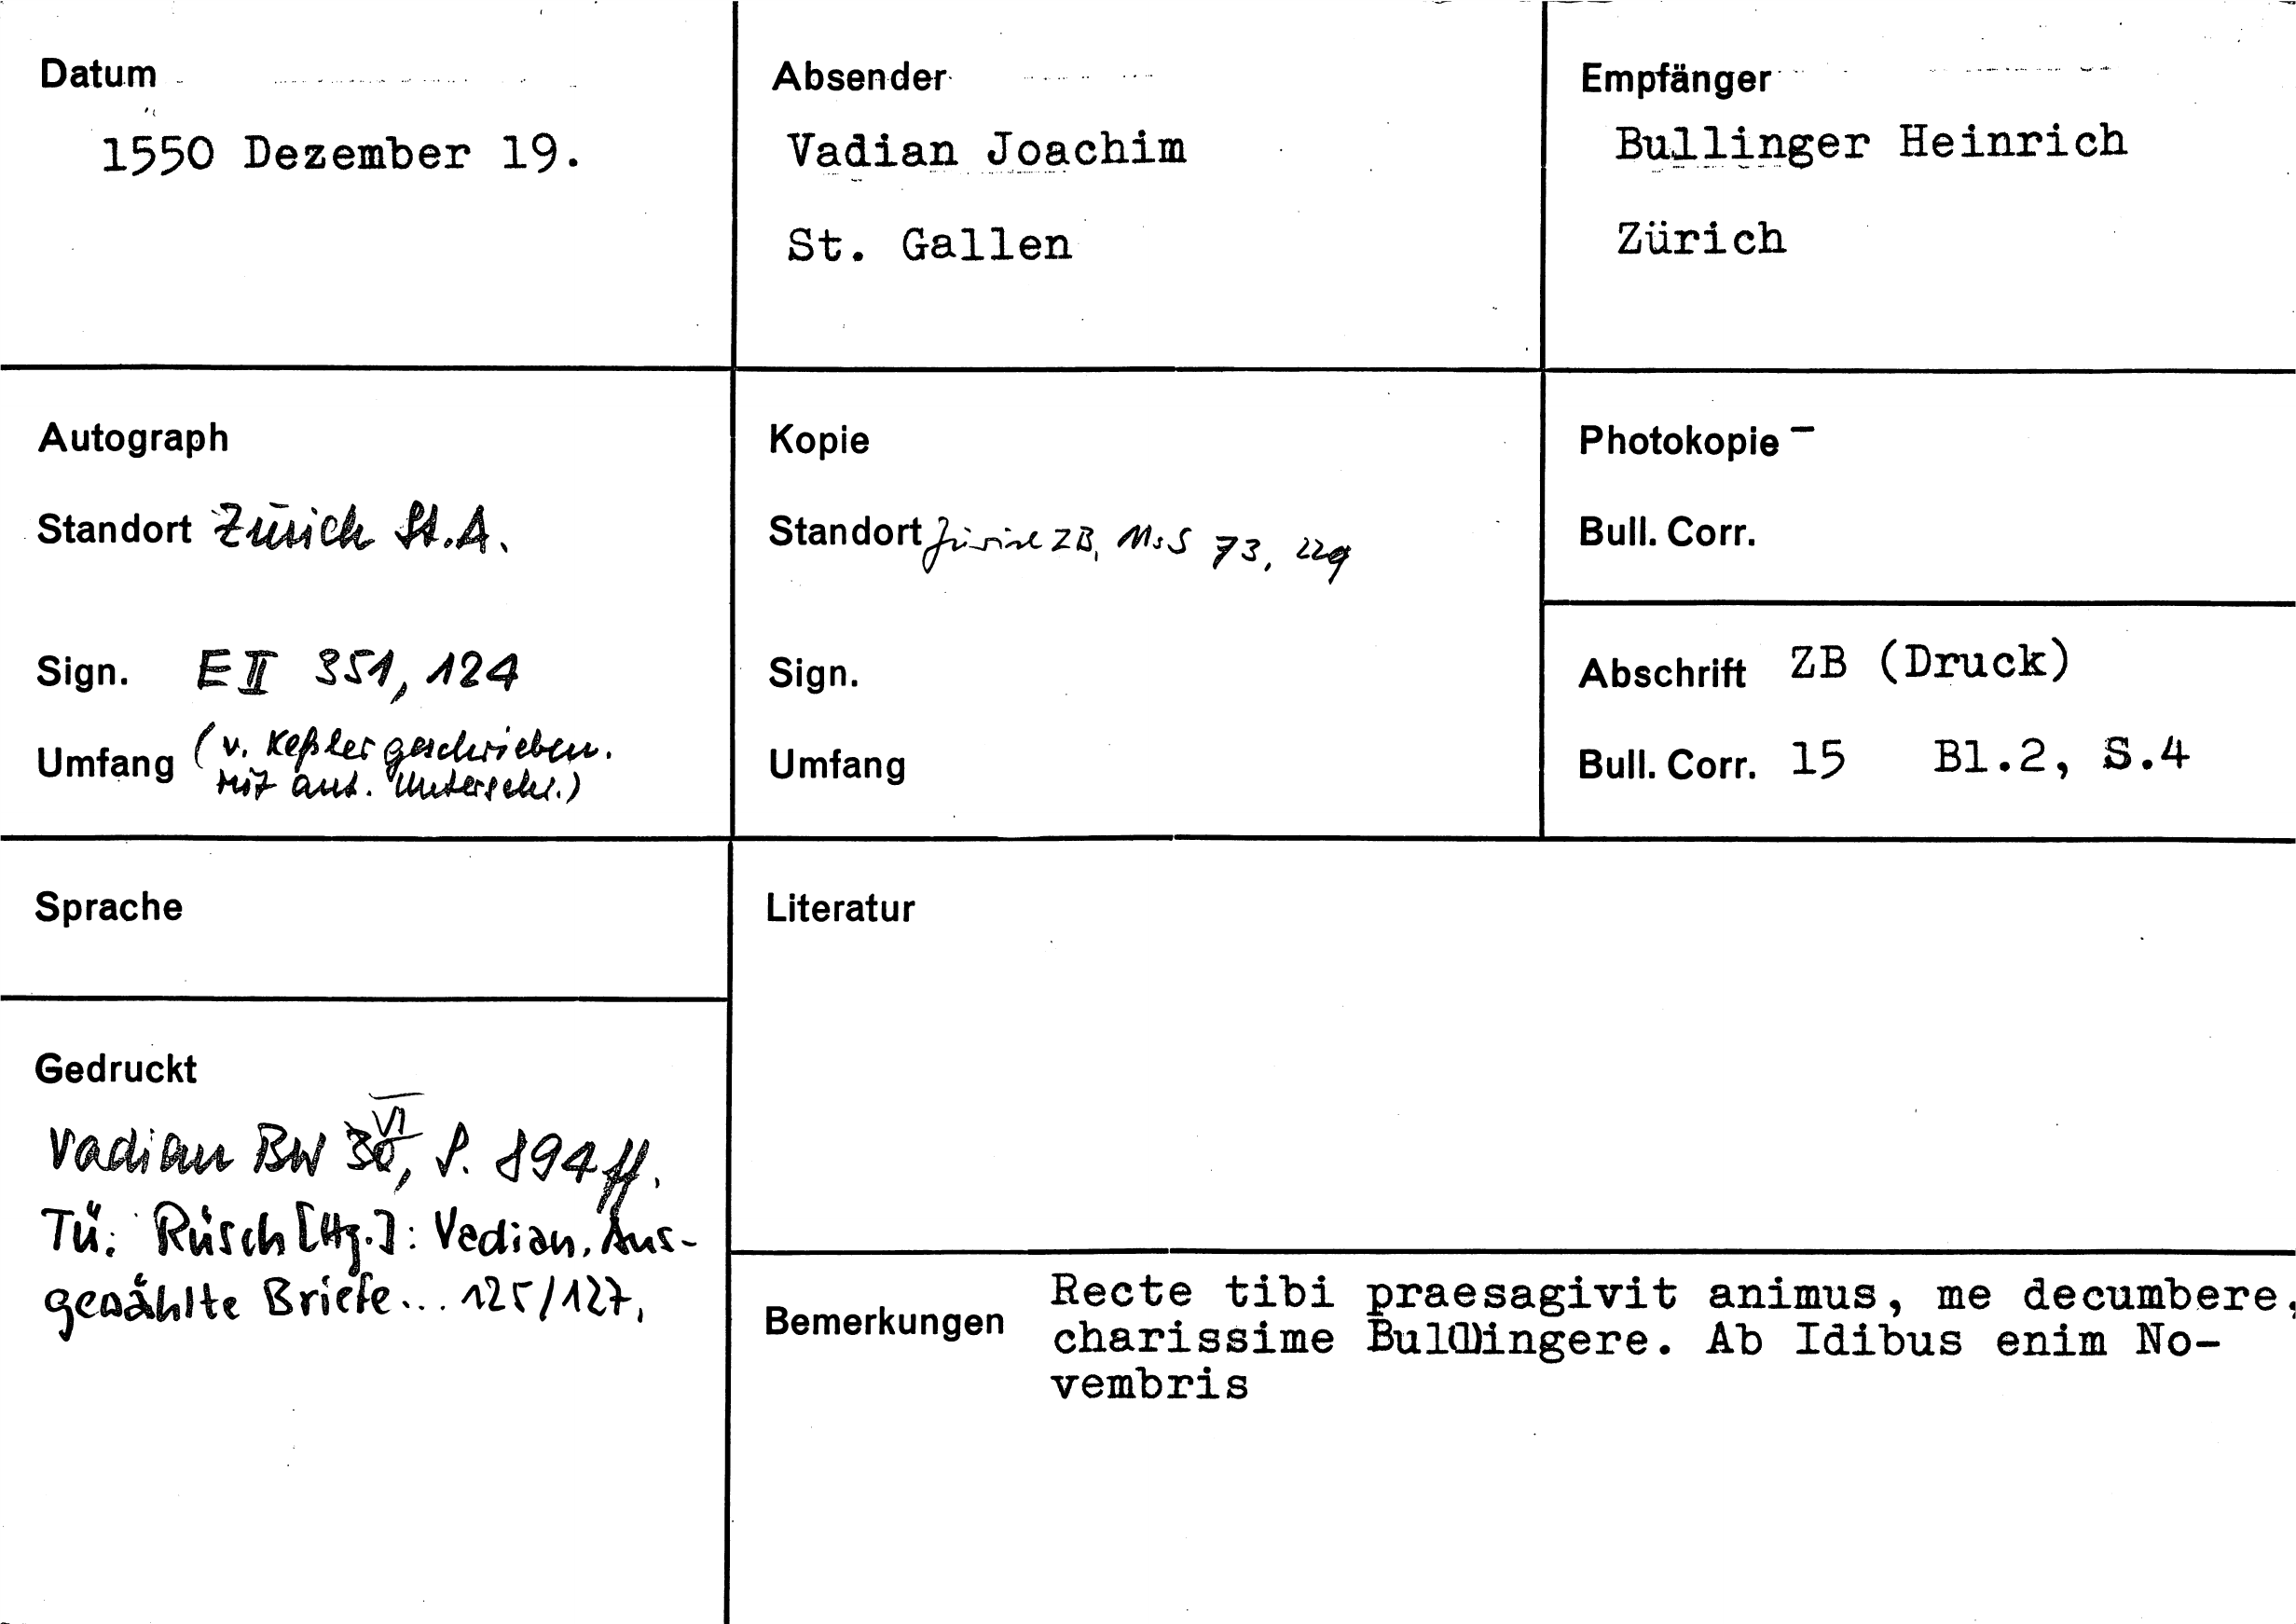 Datum
1550 Dezember 19.
Absender
Vadian Joachim
St. Gallen
Empfänger
Bullinger Heinrich
Zürich
Autograph
Standort Zürich St.A.
Sign. E II 351, 124
Umfang (v. Keßler geschrieben.
mit aut. Unterschr.)
Kopie
Standort Zürich ZB, Ms S 73, 229
Sign.
Umfang
Photokopie -
Bull. Corr.
Abschrift ZB (Druck)
Bull. Corr. 15 Bl.2, S.4
Sprache
Gedruckt
Vadian BW VI, S. 894 ff.
TÜ: Rüsch [Hg.]: Vadian, Aus-
gewählte Briefe... 125/127.
Literatur
Bemerkungen
Recte tibi praesagivit animus, me decumbere,
charissime Bullingere. Ab Idibus enim No-
vembris